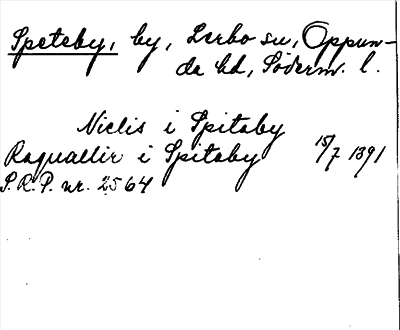 Speteby, by, Lerbo sn, Oppun-
da hd, Söderm. l.
Niclis i Spitaby
Ragualdir i Spitaby 15/7 1391
S.R.P. nr. 2564